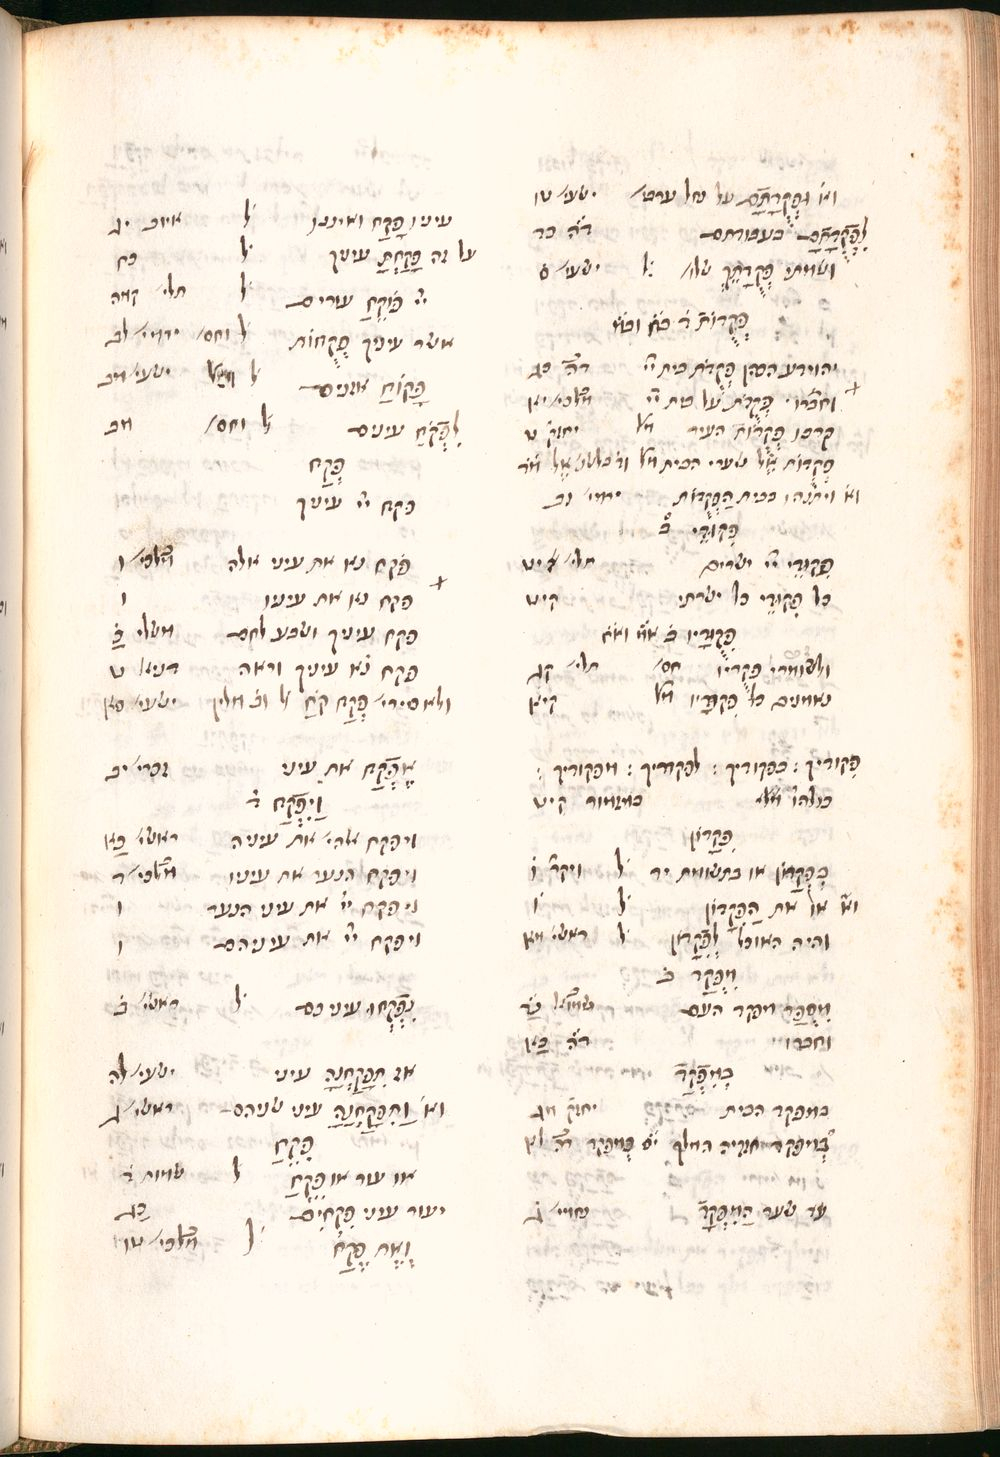 וא֗ וּפְקֻדָּתָם על נחל ערבי׳ ישעי׳ טו
לִפְקֻדָּתָם בעבודתם דה כד
ושמתי פְּקֻדָּתֵךְ שלו׳ ל ישעי׳ ס
פְּקֻדּוֹת
יהוידע הכהן פְּקֻדֹּת בית יי דה כג
וחברו פְּקֻדֹּת על בית יי מלכי׳ יא
קרבו פְּקֻדּוֹת העיר מל יחזק׳ ט
פְּקֻדּוֹת אל שערי הבית
וא ויתנהו בבית הַפְּקֻדּוֹת ירמי׳ נב
פִּקּוּדֵי ב
פִּקּוּדֵי יי ישרים תלי׳ יט
כל פִּקּוּדֵי כל ישרתי קיט
פִּקּוּדָיו ב
ולזוכרי פִקֻּדָיו חס׳ תלי׳ קג
נאמנים כל פִּקּוּדָיו מל קיא
פקודיך : בפקודיך : לפקודיך : מפקודיך :
כולהו מל׳ במזמור קיט
פִּקָּדוֹן
בְּפִקָּדוֹן או בתשומת יד ל ויקר׳ ו
וא או את הַפִּקָּדוֹן ל ו
והיה האוכל לְפִקָּדוֹן ל ראשי׳ מא
מִפְקַד ב
מִסְפַּר מפקד העם שמואל כד
וחברו דה כא
בְּמִפְקַד
במפקד הבית יחזק׳ מג
במפקד יחזקיה המלך דה לא
עד שער הַמִּפְקָד נחמי׳ ג
עיניו פָּקַח ואיננו ל איוב יג
על זה פָּקַחְתָּ עיניך ל יד
יי פּוֹקֵחַ עורים ל תלי׳ קמה
אשר עיניך פְּקֻחוֹת ל וחס׳ ירמי׳ לב
פָּקוֹחַ אזנים ל ישעי׳ מב
לִפְקֹחַ עינים ל וחס׳ מב
פְּקַח
פקח יי עיניך
פקח נא את עיני אלה מלכי׳ ו
פקח נא את עיניו ו
פקח עיניך ושבע לחם משלי כ
פקח נא עיניך וראה דניאל ט
ולאסירי׳ פְּקַח קוֹחַ ל ישעי׳ סא
אֶפְקַח את עיני זכרי׳ יב
וַיִּפְקַח ד
ויפקח אלהי׳ את עיניה ראשי׳ כא
ויפקח הנער את עיניו מלכי׳ ד
ויפקח יי את עיני הנער ו
ויפקח יי את עיניהם ו
וְנִפְקְחוּ עיניכם ל ראשי׳ ג
אז תִּפָּקַחְנָה עיני ישעי׳ לה
וא֗ וַתִּפָּקַחְנָה עיני שניהם ראשי׳ ג
פִּקֵּחַ
או עור או פִקֵּחַ ל שמות ד
יעור עיני פִקְחִים כג
וְאֶת פֶּקַח ל מלכי׳ טו